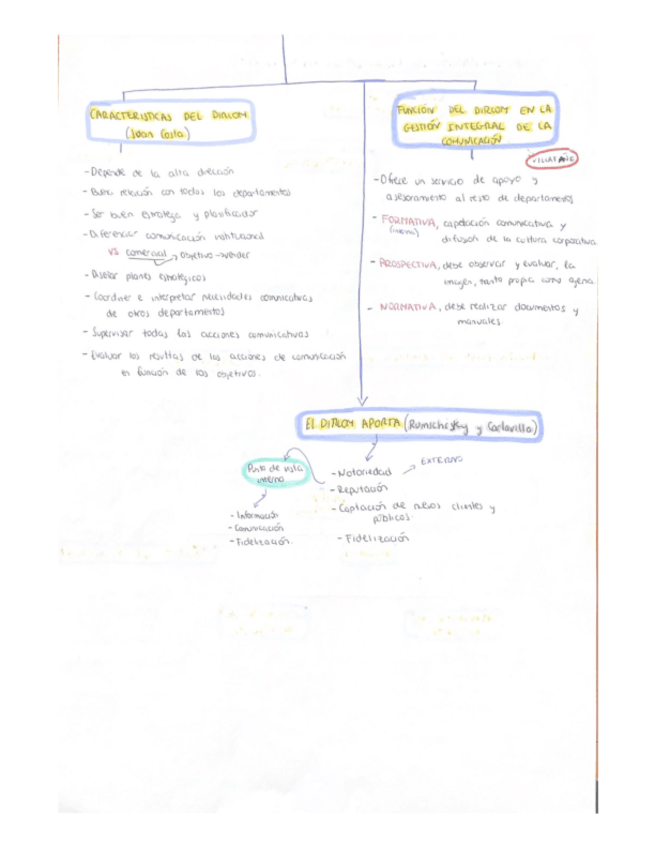 CARACTERISTICAS DEL DIRCOM
(Joan Costa)
- Depende de la alta dirección
- Buena relación con todos los departamentos
- Ser buen estratega y planificador
- Diferenciar comunicación institucional
VS comercial → objetivo → vender
- Diseñar planes estratégicos
- Coordinar e interpretar necesidades comunicativas
de otros departamentos
- Supervisar todas las acciones comunicativas
- Evaluar los resultados de las acciones de comunicación
en función de los objetivos.
FUNCIÓN DEL DIRCOM EN LA
GESTIÓN INTEGRAL DE LA
COMUNICACIÓN
VILLAFAÑE
- Ofrece un servicio de apoyo y
asesoramiento al resto de departamentos
- FORMATIVA, capacitación comunicativa y
(interna) difusión de la cultura corporativa
- PROSPECTIVA, debe observar y evaluar, la
imagen, tanto propia como ajena.
- NORMATIVA, debe realizar documentos y
manuales
EL DIRCOM APORTA (
y
)
Punto de vista
interno
- Información
- Comunicación
- Fidelización.
- Notoriedad → EXTERNO
- Reputación
- Captación de nuevos clientes y
públicos
- Fidelización